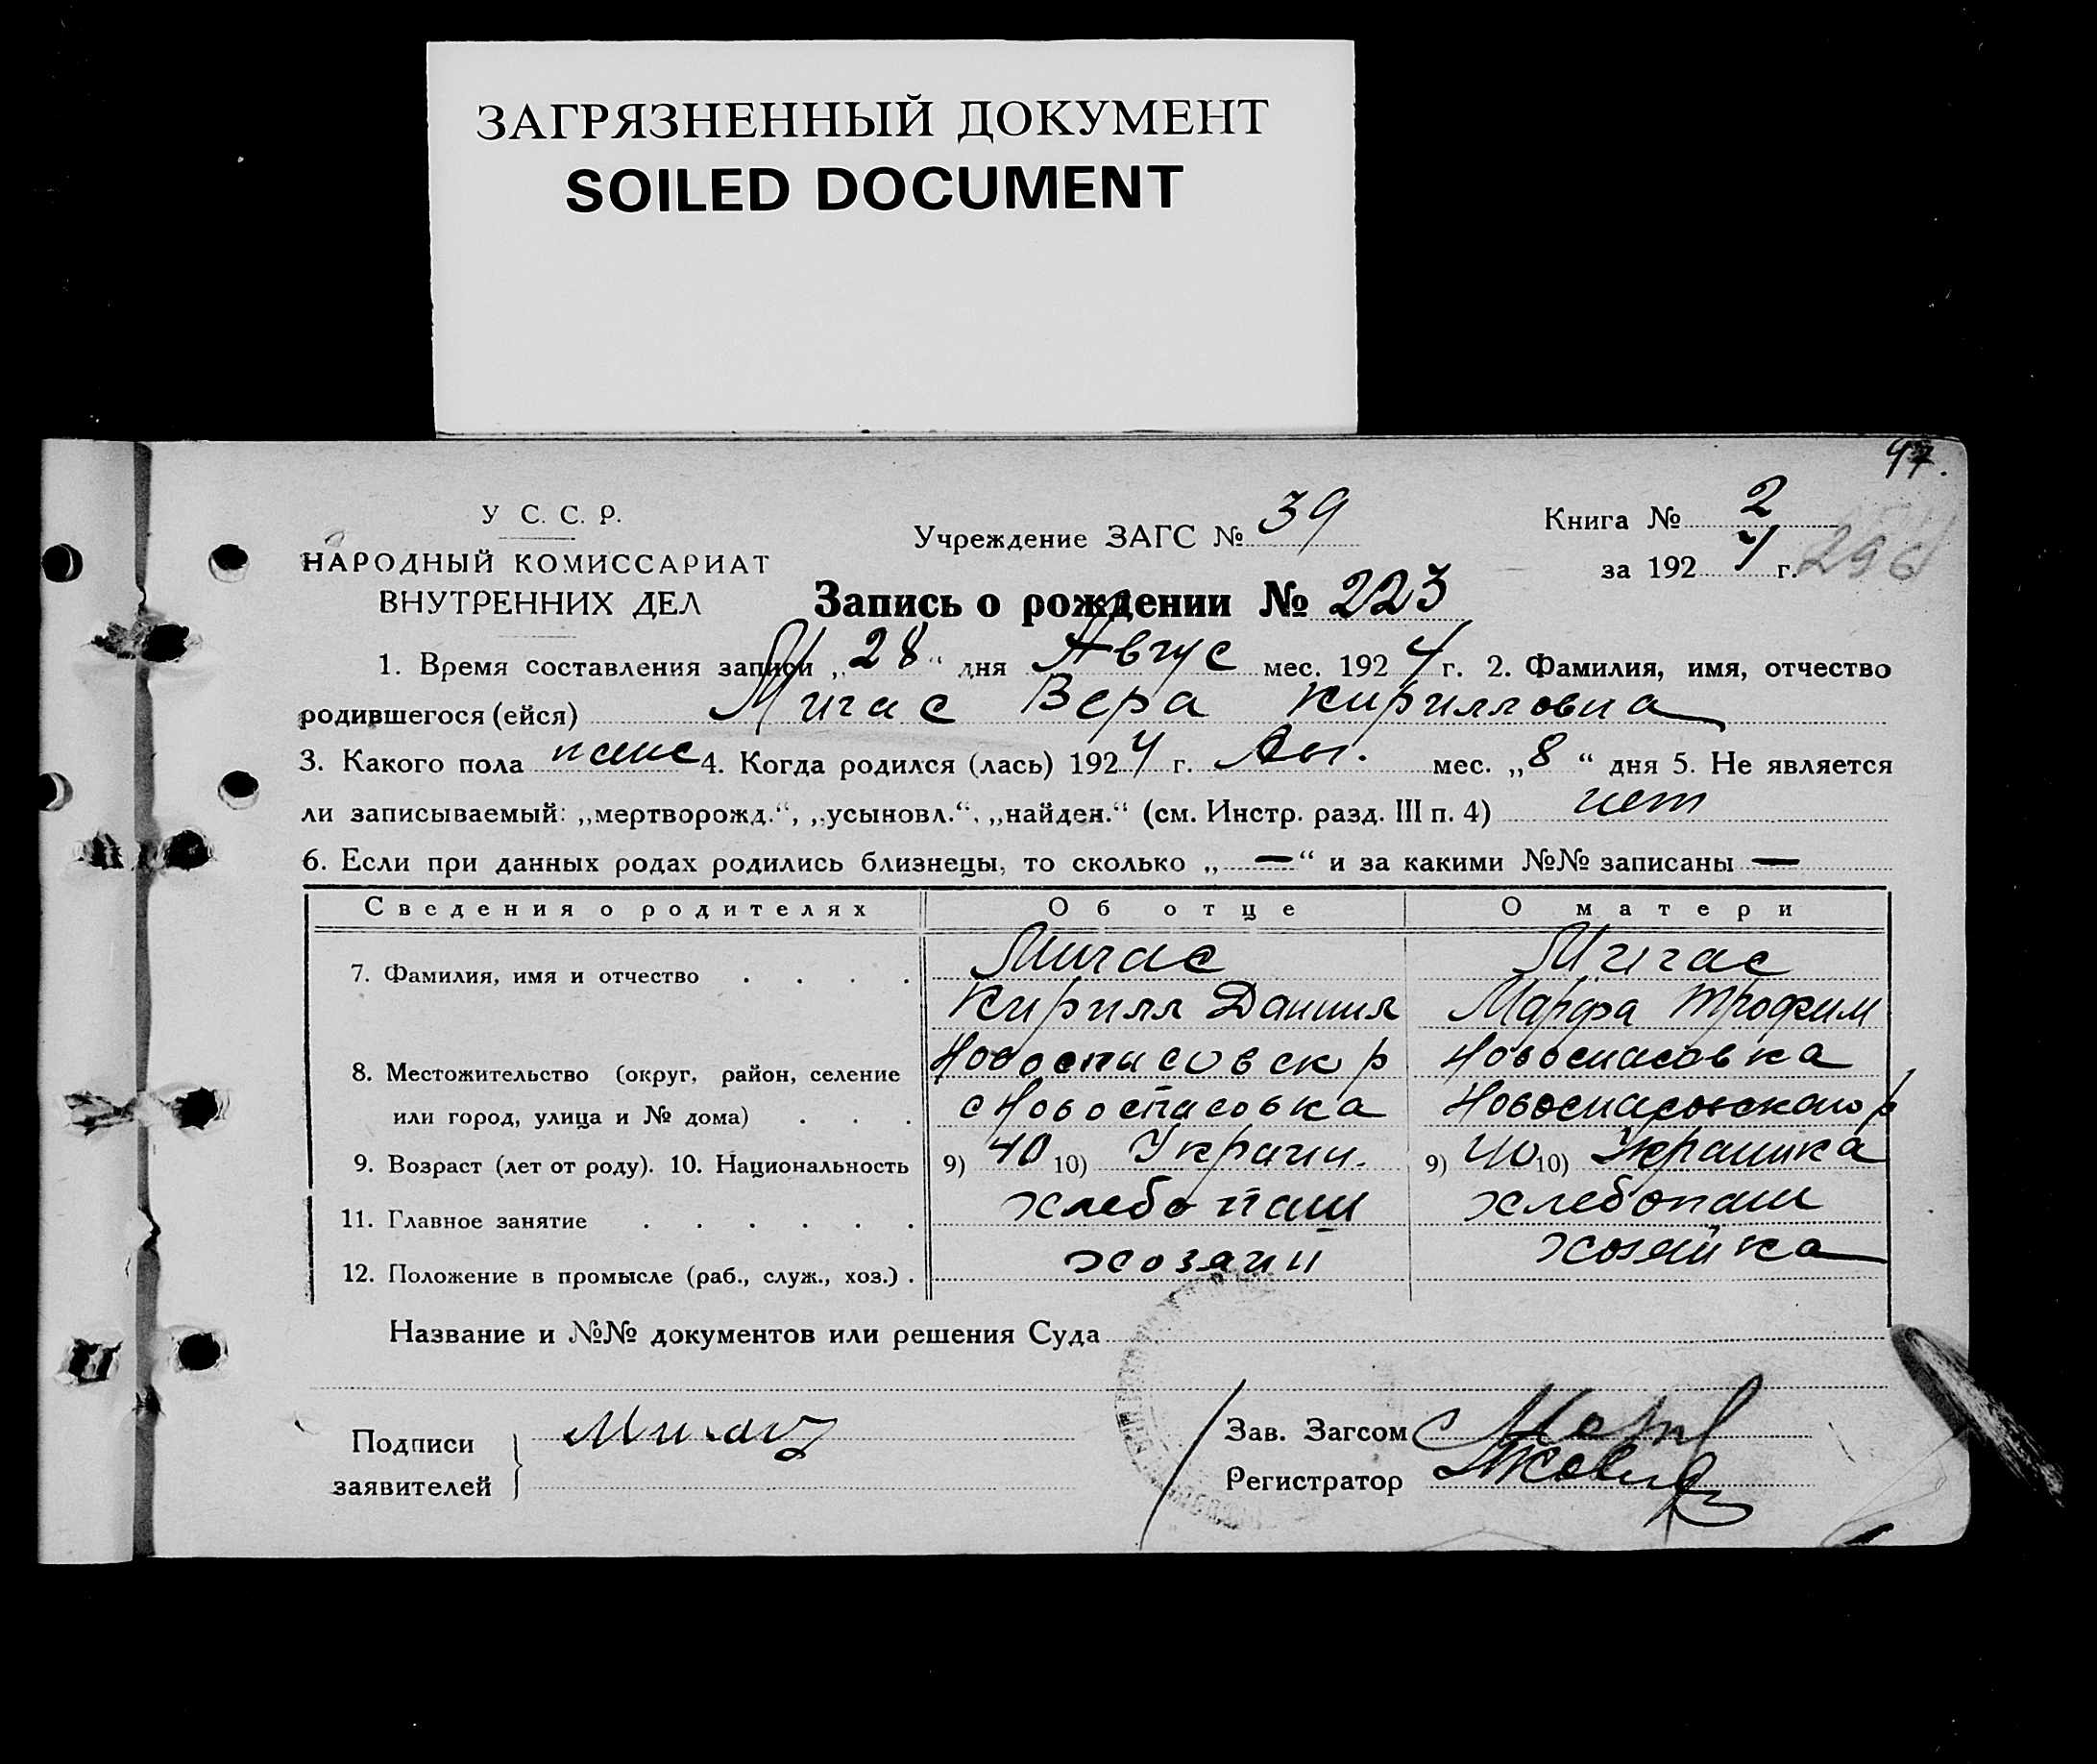 ЗАГРЯЗНЕННЫЙ ДОКУМЕНТ
SOILED DOCUMENT
97.
У С. С. Р.
НАРОДНЫЙ КОМИССАРИАТ
ВНУТРЕННИХ ДЕЛ
Учреждение ЗАГС № 39
Книга № 2
за 192 4 г.
296
Запись о рождении № 223
1. Время составления записи „28“ дня Авгус мес. 192 4 г. 2. Фамилия, имя, отчество
родившегося (ейся) Мигас Вера Кирилловна
3. Какого пола женс 4. Когда родился (лась) 192 4 г. Авг. мес. „8“ дня 5. Не является
ли записываемый: „мертворожд.“, „усыновл.“, „найден.“ (см. Инстр. разд. III п. 4) нет
6. Если при данных родах родились близнецы, то сколько „—“ и за какими №№ записаны —
Сведения о родителях Об отце О матери
7. Фамилия, имя и отчество . . . . Мигас Мигас
Кирилл Даниил Марфа Трофим
8. Местожительство (округ, район, селение Новоспасовск р Новоспасовка
или город, улица и № дома) . . . с Новоспасовка Новоспасовского р
9. Возраст (лет от роду). 10. Национальность 9) 40 10) Украин. 9) 40 10) Украинка
11. Главное занятие . . . . . . хлебопаш хлебопаш
12. Положение в промысле (раб., служ., хоз.) . хозяин хозяйка
Название и №№ документов или решения Суда
Подписи
заявителей
Зав. Загсом
Регистратор